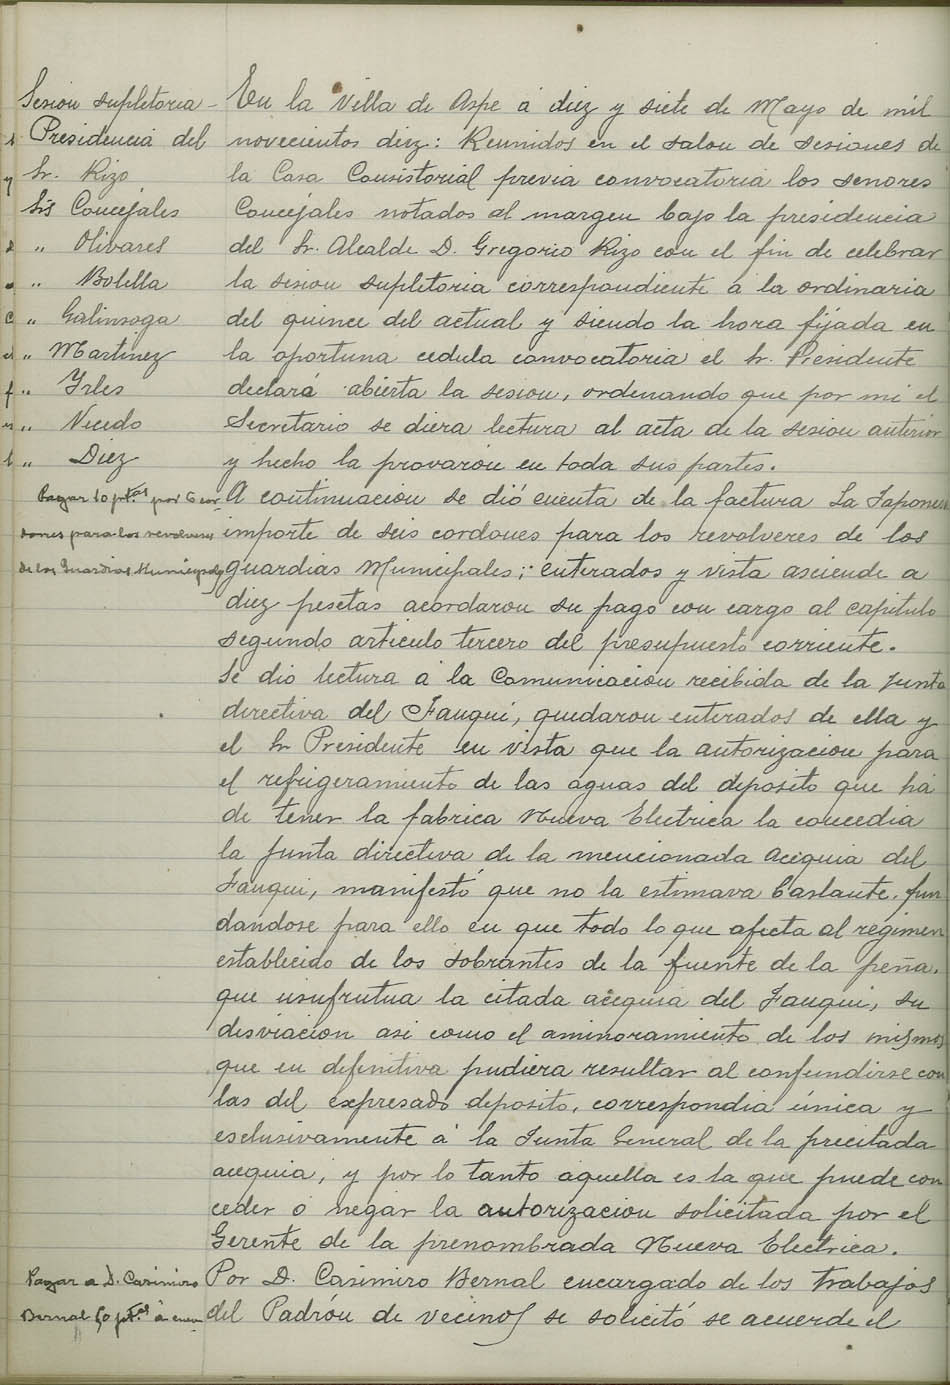 Sesion supletoria -
Presidencia del
Sr. Rizo
Srs Concejales
" Olivares
" Botella
" Galinsoga
" Martinez
" Yrles
" Vicedo
" Diez
En la Villa de Aspe á diez y siete de Mayo de mil
novecientos diez: Reunidos en el salon de sesiones de
la Casa Consistorial previa convocatoria los senores
Concejales notados al margen bajo la presidencia
del Sr. Alcalde D. Gregorio Rizo con el fin de celebrar
la sesion supletoria correspondiente a la ordinaria
del quince del actual y siendo la hora fijada en
la oportuna cedula convocatoria el Sr. Presidente
declará abierta la sesion, ordenando que por mi el
Secretario se diera lectura al acta de la sesion anterior
y hecho la provaron en toda sus partes.
Pagar 10 ptas por 6 cor-
dones para los revolveres
de los Guardias Municipales
A continuacion se dió cuenta de la factura La Japonesa
importe de seis cordones para los revolveres de los
guardias Municipales; enterados y vista asciende a
diez pesetas acordaron su pago con cargo al capitulo
segundo articulo tercero del presupuesto corriente.
Se dio lectura á la Comunicacion recibida de la Junta
directiva del Fauqui, quedaron enterados de ella y
el Sr Presidente en vista que la autorizacion para
el refrigeramiento de las aguas del deposito que há
de tener la fabrica Nueva Electrica la concedia
la Junta directiva de la mencionada acequia del
Fauqui, manifestó que no la estimava bastante, fun
dandose para ello en que todo lo que afecta al regimen
establecido de los sobrantes de la fuente de la peña,
que usufrutua la citada acequia del Fauqui, su
desviacion asi como el aminoramiento de los mismos
que en definitiva pudiera resultar al confundirse con
las del expresado deposito, correspondia única y
esclusivamente á la Junta General de la precitada
acequia, y por lo tanto aquella es la que puede con
ceder o negar la autorizacion solicitada por el
Gerente de la prenombrada Nueva Electrica.
Pagar a D. Casimiro
Bernal 50 ptas á cuen
Por D. Casimiro Bernal encargado de los trabajos
del Padrón de vecinos se solicitó se acuerde el